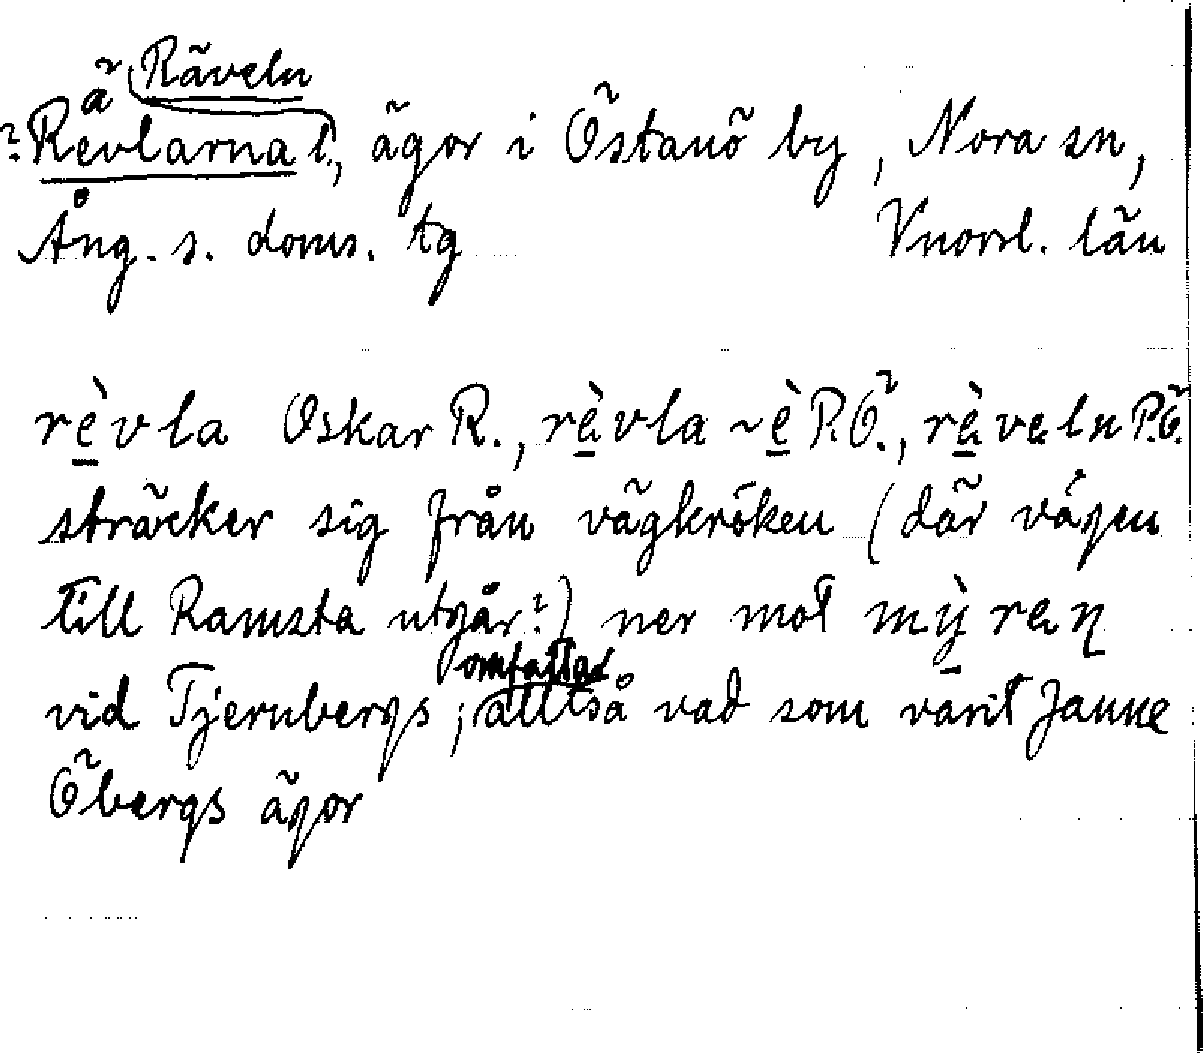 ä Räveln
?Revlarna l., ägor i Östanö by, Nora sn,
Ång. s. doms. tg Vnorrl. län
rèvla Oskar R., rèvla ~è P.Ö., rèveln P.Ö.
sträcker sig från vägkröken (där vägen
till Ramsta utgår?) ner mot mỳren
omfattad
vid Tjernbergs; alltså vad som varit Janne
Öbergs ägor